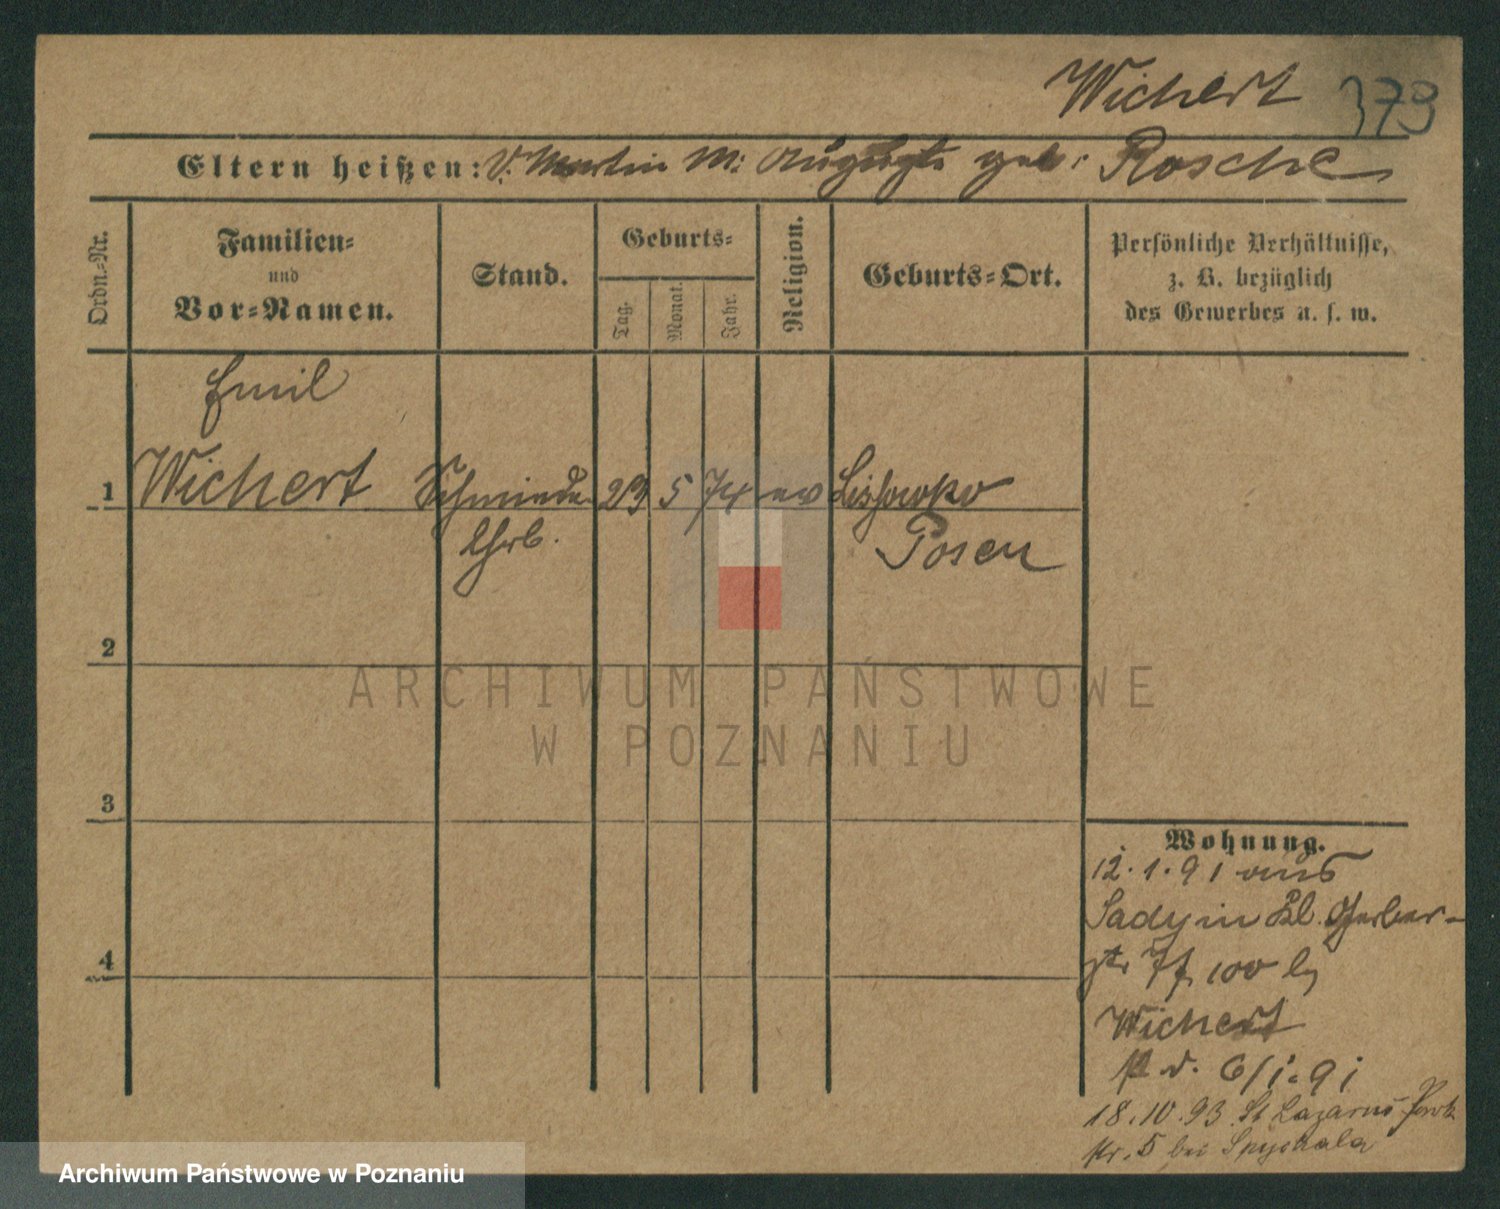 Wichert 379
Eltern heißen: V. Martin M: Auguste geb: Rosche
Ordn.-Nr.
Familien-
und
Vor-Namen.
Stand.
Geburts-
Tag.
Monat.
Jahr.
Religion.
Geburts-Ort.
Persönliche Verhältnisse,
z. B. bezüglich
des Gewerbes u. s. w.
Emil
1 Wichert Schmiede 23 5 74 ev Lissowko
Lhrb. Posen
2
3
4
ARCHIWUM PAŃSTWOWE
W POZNANIU
Wohnung.
12.1.91 aus
Sady in Kl. Gerber-
str 7f. 100
Wichert
v. 6/1.91
18.10.93 St Lazarus
Nr. 5 bei Spychala
Archiwum Państwowe w Poznaniu